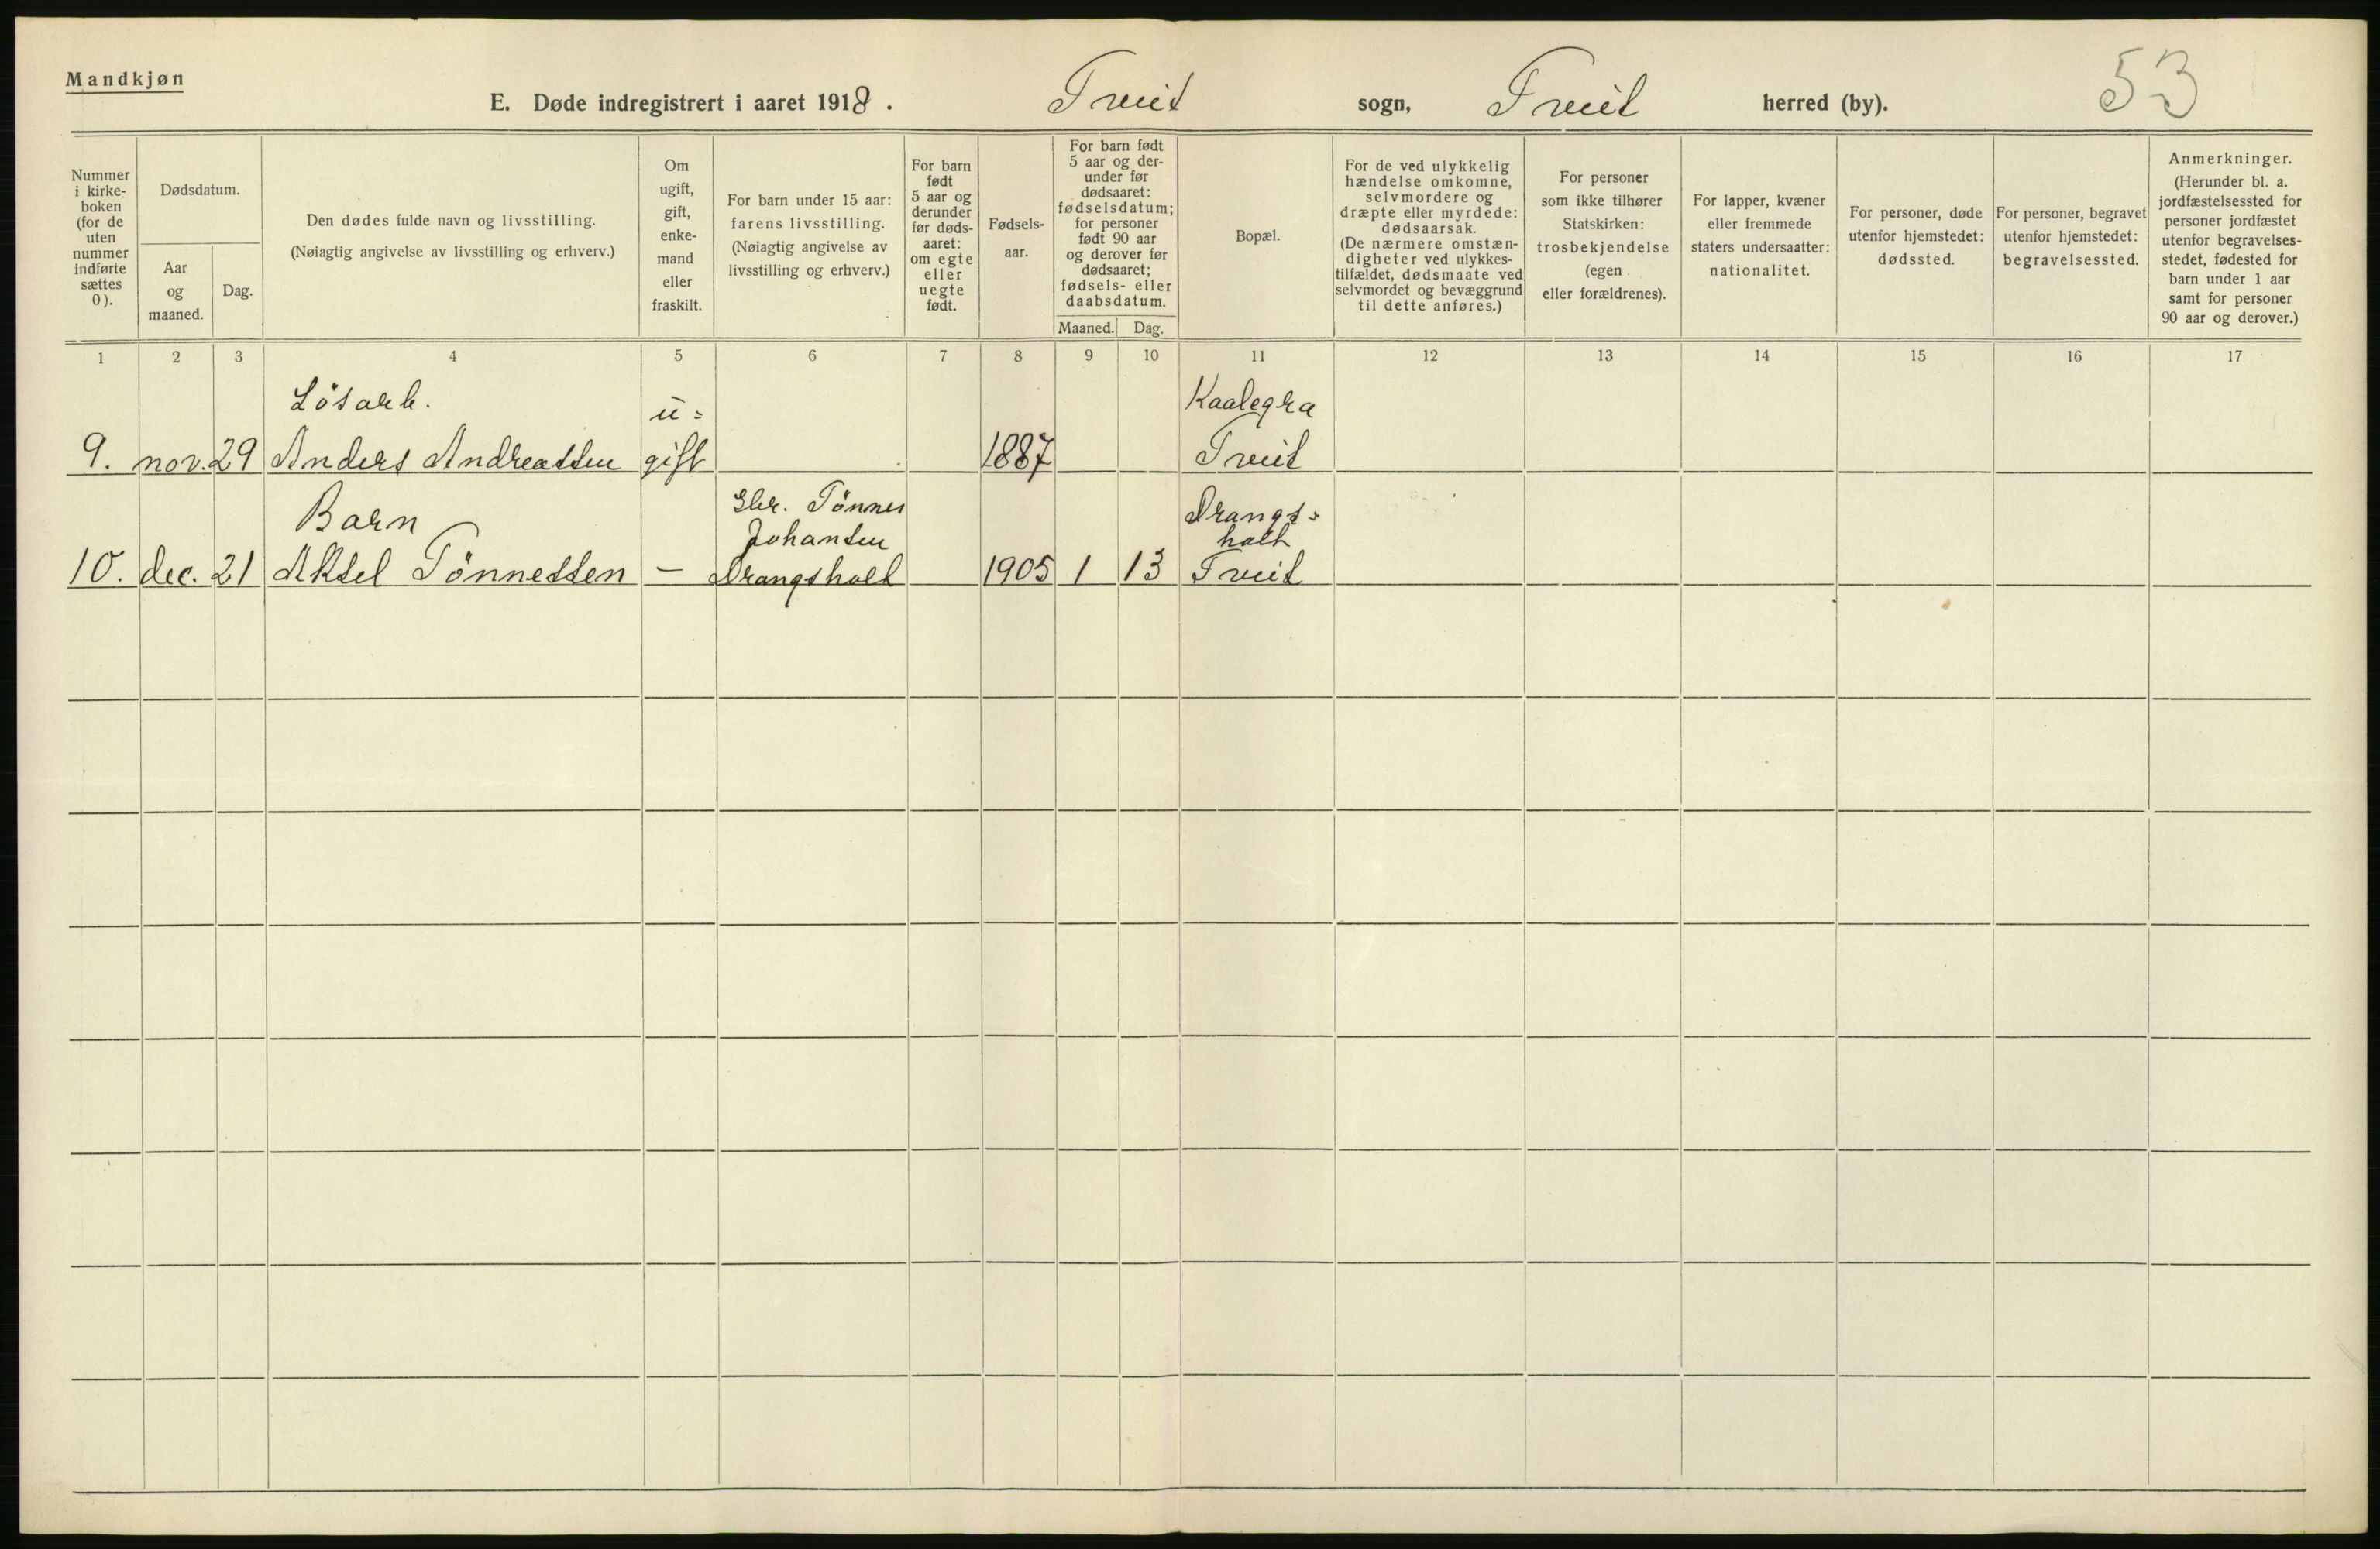 Mandkjøn
E. Døde indregistrert i aaret 1918. Tveit sogn, Tveit herred (by).
53
Nummer
i kirke-
boken
(for de
uten
nummer
indførte
sættes
0).
Dødsdatum.
Aar
og
maaned.
Dag.
Den dødes fulde navn og livsstilling.
(Nøiagtig angivelse av livsstilling og erhverv.)
Om
ugift,
gift,
enke-
mand
eller
fraskilt.
For barn under 15 aar:
farens livsstilling.
(Nøiagtig angivelse av
livsstilling og erhverv.)
For barn
født
5 aar og
derunder
før døds-
aaret:
om egte
eller
uegte
født.
Fødsels-
aar.
For barn født
5 aar og der-
under før
dødsaaret:
fødselsdatum;
for personer
født 90 aar
og derover før
dødsaaret;
fødsels- eller
daabsdatum.
Maaned. Dag.
Bopæl.
For de ved ulykkelig
hændelse omkomne,
selvmordere og
dræpte eller myrdede:
dødsaarsak.
(De nærmere omstæn-
digheter ved ulykkes-
tilfældet, dødsmaate ved
selvmordet og bevæggrund
til dette anføres.)
For personer
som ikke tilhører
Statskirken:
trosbekjendelse
(egen
eller forældrenes).
For lapper, kvæner
eller fremmede
staters undersaatter:
nationalitet.
For personer, døde
utenfor hjemstedet:
dødssted.
For personer, begravet
utenfor hjemstedet:
begravelsessted.
Anmerkninger.
(Herunder bl. a.
jordfæstelsessted for
personer jordfæstet
utenfor begravelses-
stedet, fødested for
barn under 1 aar
samt for personer
90 aar og derover.)
1 2 3 4 5 6 7 8 9 10 11 12 13 14 15 16 17
Løsarb. u= Kaalegra
9. nov. 29 Anders Andreassen gift 1887 Tveit
Barn Gbr. Tönnes Drangs=
Johansen holt
10. dec. 21 Aksel Tönnessen — Drangsholt 1905 1 13 Tveit